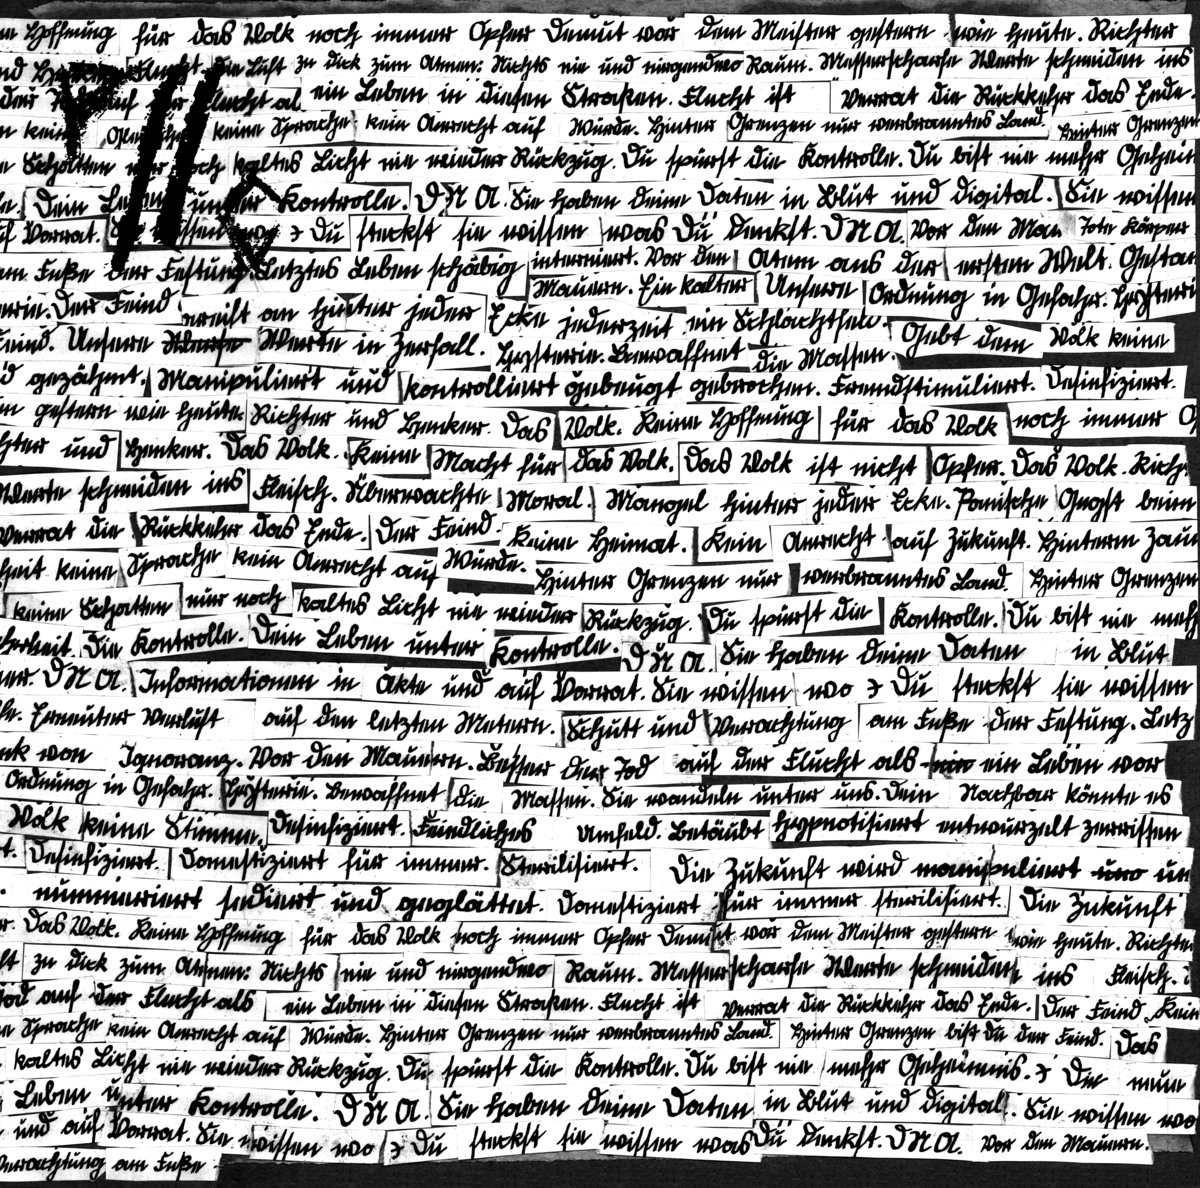 Hoffnung für das Volk noch immer Opfer Demut vor dem Meister gestern wie heute. Richter
die Luft zu dick zum Atmen: Nichts nie und nirgendwo Raum. Messerscharfe Werte schneiden ins
ein Leben in diesen Straßen. Flucht ist Verrat die Rückkehr das Ende.
keine Sprache kein Anrecht auf Würde. Hinter Grenzen nur verbranntes Land. Hinter Grenzen
Schatten nur noch kaltes Licht nie wieder Rückzug. Du spürst die Kontrolle. Du bist nie mehr Geheim
Dein Leben unter Kontrolle. DNA. Sie haben deine Daten in Blut und digital. Sie wissen
auf Vorrat. Sie wissen wo Du steckst sie wissen was Du Denkst. DNA. Vor den Mau Tote Körper
am Fuße der Festung. Letztes Leben schäbig interniert. Vor den Atem aus der ersten Welt. Gestan
Mauern. Ein kalter Unsere Ordnung in Gefahr. Hysteri
erie. Der Feind an hinter jeder Ecke jederzeit ein Schlachtfeld.
Feind. Unsere Werte in Zerfall. Hysterie. Bewaffnet die Massen. Gebt dem Volk keine
d gezähmt. Manipuliert und kontrolliert gebeugt gebrochen. Fremdstimuliert. Desinfiziert.
gestern wie heute. Richter und Henker. Das Volk. Keine Hoffnung für das Volk noch immer
hter und Henker. Das Volk. Keine Macht für das Volk. Das Volk ist nicht Opfer. Das Volk. Rich
Werte schneiden ins Fleisch. Überwachte Moral. Mangel hinter jeder Ecke. Panische Angst beim
Verrat die Rückkehr das Ende. Der Feind. Keine Heimat. Kein Anrecht auf Zukunft. Hinterm Zaun
heit keine Sprache kein Anrecht auf Würde. Hinter Grenzen nur verbranntes Land. Hinter Grenzen
keine Schatten nur noch kaltes Licht nie wieder Rückzug. Du spürst die Kontrolle. Du bist nie meh
cherheit. Die Kontrolle. Dein Leben unter Kontrolle. DNA. Sie haben deine Daten in Blut
DNA. Informationen in Akte und auf Vorrat. Sie wissen wo Du steckst sie wissen
Erneuter Verlust auf den letzten Metern. Schutt und Verachtung am Fuße der Festung. Letz
nk von Ignoranz. Vor den Mauern. Besser der Tod auf der Flucht als ein Leben vor
Ordnung in Gefahr. Hysterie. Bewaffnet die Massen. Sie wandeln unter uns. Dein Nachbar könnte es
Volk keine Stimme. Desinfiziert. Friedliches Umfeld. Betäubt hypnotisiert entwurzelt zerrissen
t. Desinfiziert. Domestiziert für immer. Sterilisiert. Die Zukunft wird manipuliert und un
nummeriert sediert und geglättet. Domestiziert für immer sterilisiert. Die Zukunft
r. Das Volk. Keine Hoffnung für das Volk noch immer Opfer Demut vor dem Meister gestern wie heute. Richter
ft zu dick zum Atmen: Nichts nie und nirgendwo Raum. Messerscharfe Werte schneiden ins Fleisch.
Tod auf der Flucht als ein Leben in diesen Straßen. Flucht ist Verrat die Rückkehr das Ende. Der Feind. Kein
Sprache kein Anrecht auf Würde. Hinter Grenzen nur verbranntes Land. Hinter Grenzen bist du der Feind. Das
kaltes Licht nie wieder Rückzug. Du spürst die Kontrolle. Du bist nie mehr Geheimnis. Die neue
Leben unter Kontrolle. DNA. Sie haben deine Daten in Blut und digital. Sie wissen wo
und auf Vorrat. Sie wissen wo Du steckst sie wissen was Du Denkst. DNA. Vor den Mauern.
Verachtung am Fuße